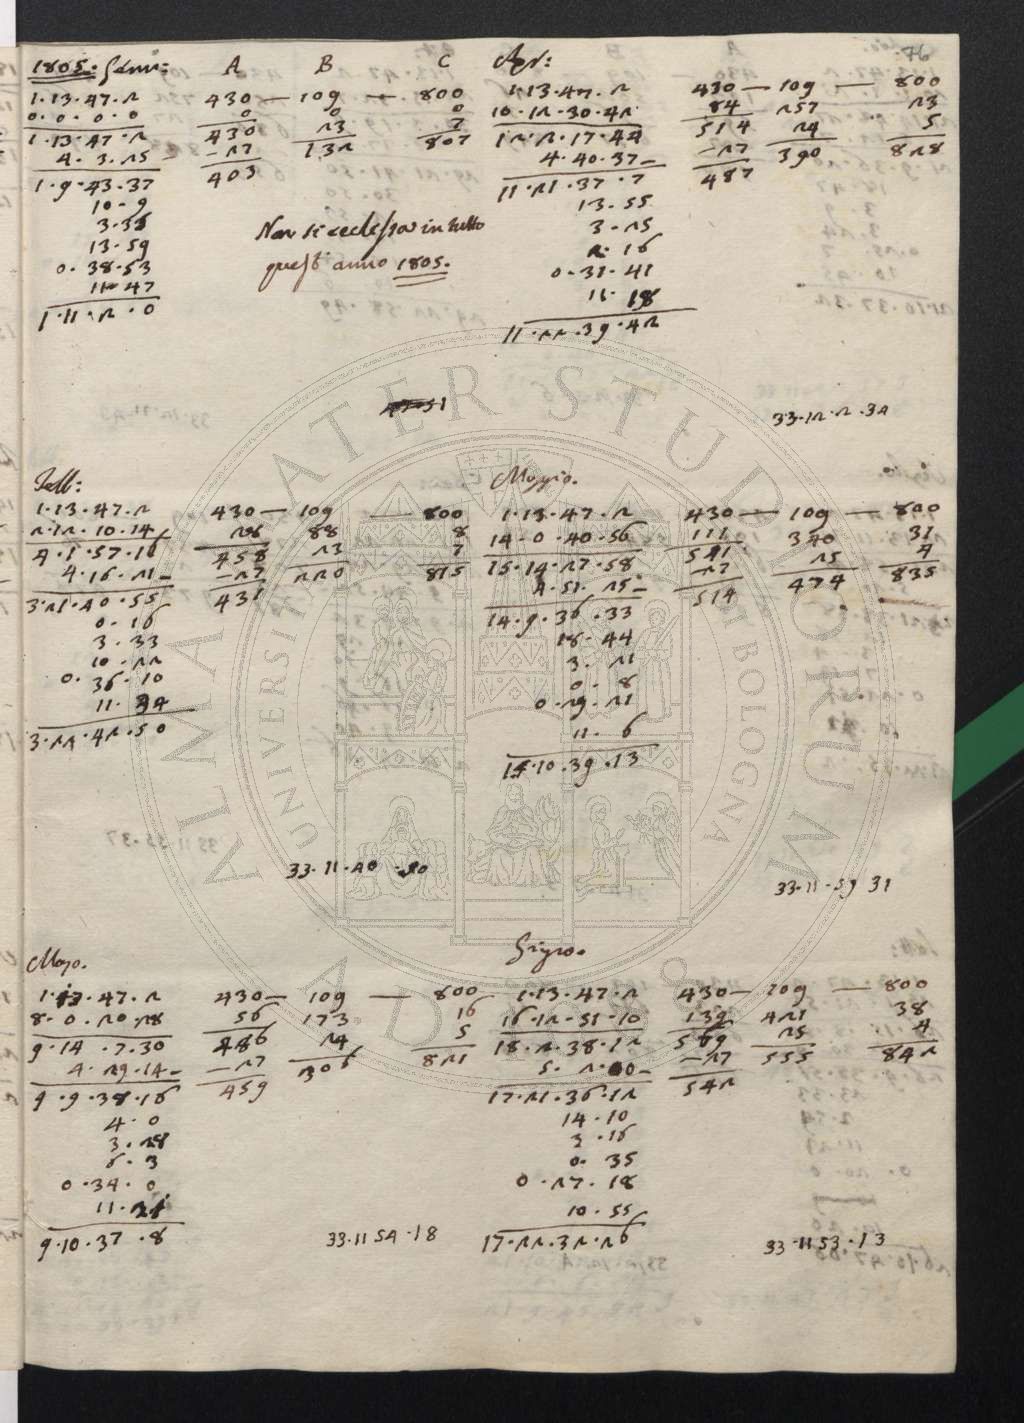 76
1805. Genn:    A    B    C
1.13.47.2    430 — 109 — 800
0.0.0.0    0    0    0
1.13.47.2    430    23    7
4.3.25 -    -27    132    807
1.9.43.37    403
10.9
3.35
13.59
0.38.53
11.47
1.11.2.0
Non si
in tutto
quest' anno 1805.
Apr:
1.13.47.2    430 — 109 — 800
10.12.30.42    84    257    23
12.2.17.44    514    24    5
4.40.37 -    -27    390    828
11.21.37.7    487
13.55
3.25
2.16
0.31.41
11.18
11.22.39.42
33.12.2.34
Febb:
1.13.47.2    430 — 109 — 800
2.12.10.14    28    88    8
4.1.57.16    458    23    7
4.16.21 -    -27    220    815
3.21.40.55    431
0.16
3.33
10.22
0.36.10
11.34
3.22.42.50
33.11.40.50
Maggio.
1.13.47.2    430 — 109 — 800
14.0.40.56    111    340    31
15.14.27.58    541    25    4
4.51.25 -    -27    474    835
14.9.36.33    514
18.44
3.21
0.8
0.29.21
11.6
15.10.39.13
33.11.59 31
1.13.47.2    430 — 109 — 800
8.0.20.28    56    173    16
9.14.7.30    486    24    5
4.29.14 -    -27    306    821
9.9.38.16    459
4.0
3.28
6.3
0.34.0
11.21
9.10.37.8
33.11 54.18
Giugno.
1.13.47.2    430 — 109 — 800
16.12.51.10    139    421    38
18.2.38.12    569    25    4
5.2.00 -    -27    555    842
17.21.36.12    542
14.10
3.16
0.35
0.27.18
10.55
17.22.32.26
33.11 53.13
ALMA MATER STUDIORUM
UNIVERSITÀ DI BOLOGNA
A.D. 1088